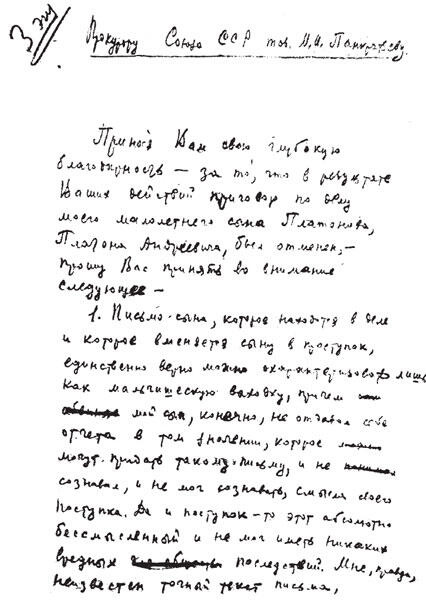 3 экз
Прокурору Союза ССР тов. М.И. Панкратьеву.
Принося Вам свою глубокую
благодарность — за то, что в результате
Ваших действий приговор по делу
моего малолетнего сына Платонова,
Платона Андреевича, был отменен, —
прошу Вас принять во внимание
следующее —
1. Письмо сына, которое находится в деле
и которое вменяется сыну в проступок,
единственно верно можно охарактеризовать лишь
как мальчишескую выходку, причем
мой сын, конечно, не отдавал себе
отчета в том значении, которое
могут придать такому письму, и не
сознавал, и не мог сознавать, смысла своего
поступка. Да и поступок-то этот абсолютно
бессмысленный и не мог иметь никаких
вредных последствий. Мне, правда,
неизвестен точный текст письма,